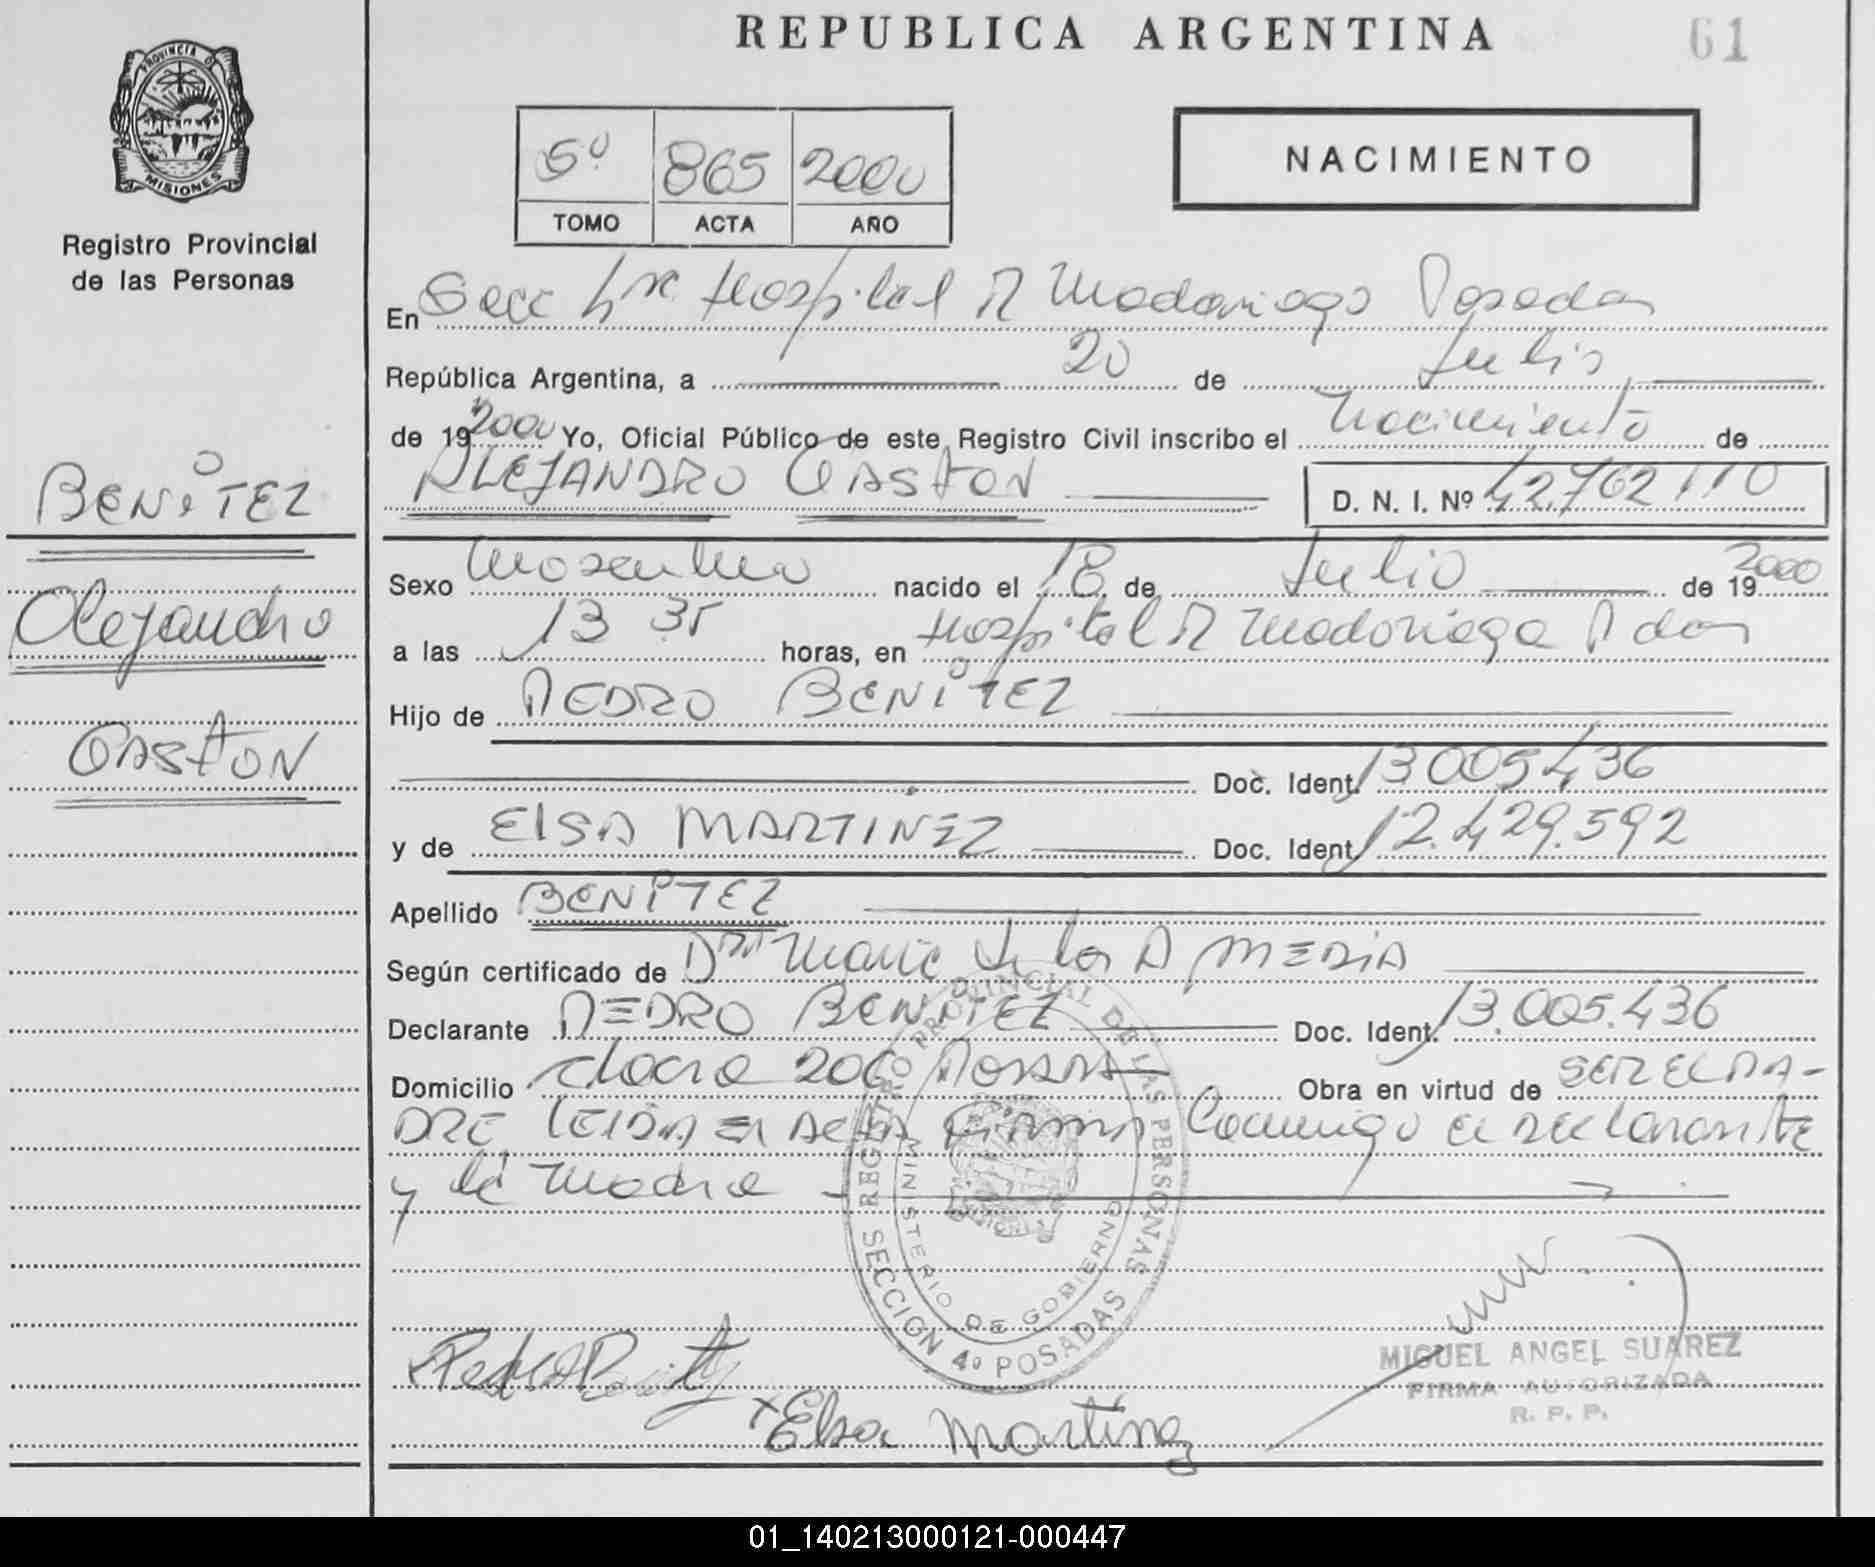 REPUBLICA ARGENTINA
61
PROVINCIA DE
MISIONES
Registro Provincial
de las Personas
5º 865 2000
TOMO ACTA AÑO
NACIMIENTO
En Secc Hospital R Madariaga Posadas
República Argentina, a 20 de Julio
de 19 2000 Yo, Oficial Público de este Registro Civil inscribo el Nacimiento de
ALEJANDRO GASTON D. N. I. Nº 42.762.110
BENITEZ
Alejandro
GASTON
Sexo Masculino nacido el 18 de Julio de 19 2000
a las 13 35 horas, en Hospital R Madariaga Pdas
Hijo de PEDRO BENITEZ
Doc. Ident. 13.005.436
y de ELSA MARTINEZ Doc. Ident. 12.429.592
Apellido BENITEZ
Según certificado de Dra Maria de los A MEDIA
Declarante PEDRO BENITEZ Doc. Ident. 13.005.436
Domicilio chacra 206 Obra en virtud de SER EL PA-
DRE LEIDA EL ACTA FIRMA Conmigo el declarante
y la Madre
REGISTRO PROVINCIAL DE LAS PERSONAS
MINISTERIO DE GOBIERNO
SECCION 4º POSADAS
MIGUEL ANGEL SUAREZ
FIRMA AUTORIZADA
R. P. P.
Elsa Martinez
01_140213000121-000447